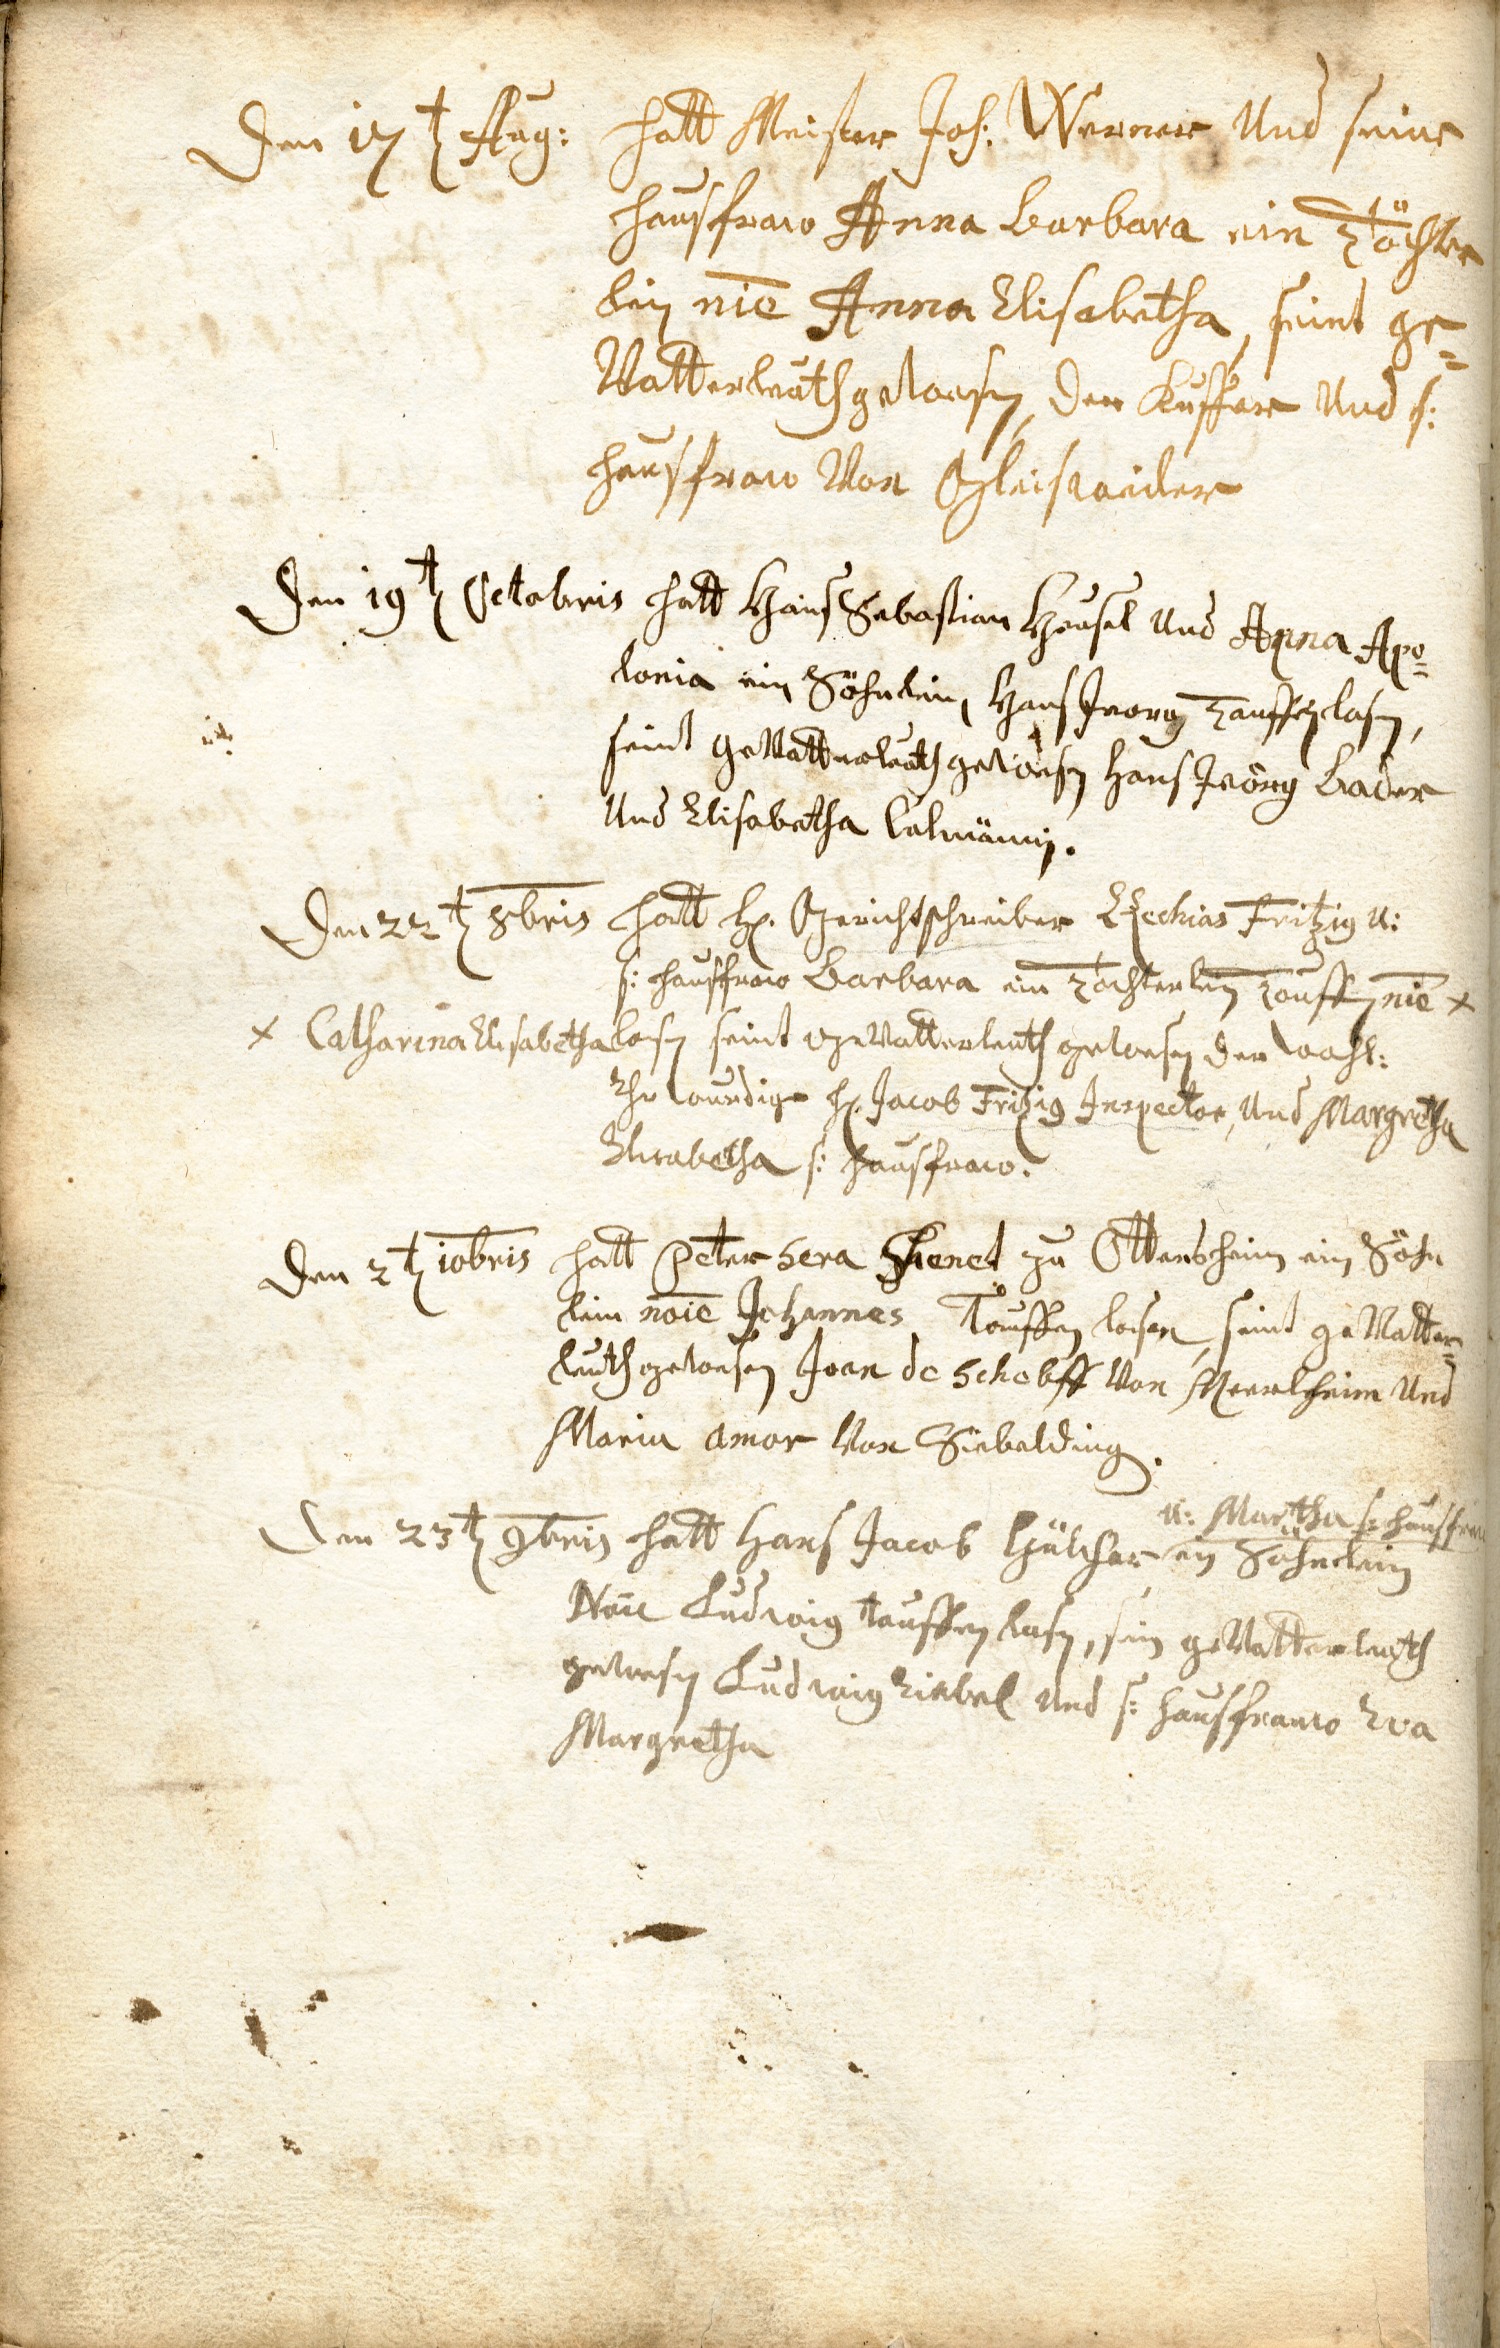 Den 17t Aug: hatt Meister Joh: Werner Und seine
hausfraw Anna Barbara ein Töchter
lin nie Anna Elisabetha, seint ge=
Vatterleuth gewesen, der Küffer Und s:
hausfraw Von Gleisweiler
Den 19t Octobris hatt Hans Sebastian Heusel Und Anna Apo=
lonia ein Söhnlein, Hans Jeorg Tauffen lasen,
seint geVatterleuth gewesen Hans Jeörg Bader
Und Elisabetha
Den 22t 8bris hatt H. Gerichtschreiber Ezechias Fritzig u:
s: hausfraw Barbara ein Töchterlein Tauffen nie x
x Catharina Elisabetha lasen seint geVatterleuth gewesen der wohl:
Ehr würdige H. Jacob Fritzig Inspector, Und Margretha
Elisabetha s: hausfraw.
Den 2t 10bris hatt Peter Sera zu Ottersheim ein Söhn
lein noie Johannes Tauffen lasen, seint geVatter=
leuth gewesen Joan de Schobff Von Meerlheim Und
Maria Amor Von Siebelding.
u: Martha s: hausfraw
Den 23t 9bris hatt Hans Jacob ein Söhnlein
Noie Ludwig tauffen lasen, sein geVatterleuth
gewesen Ludwig Ziebel Und s: hausfrauw Eva
Margretha